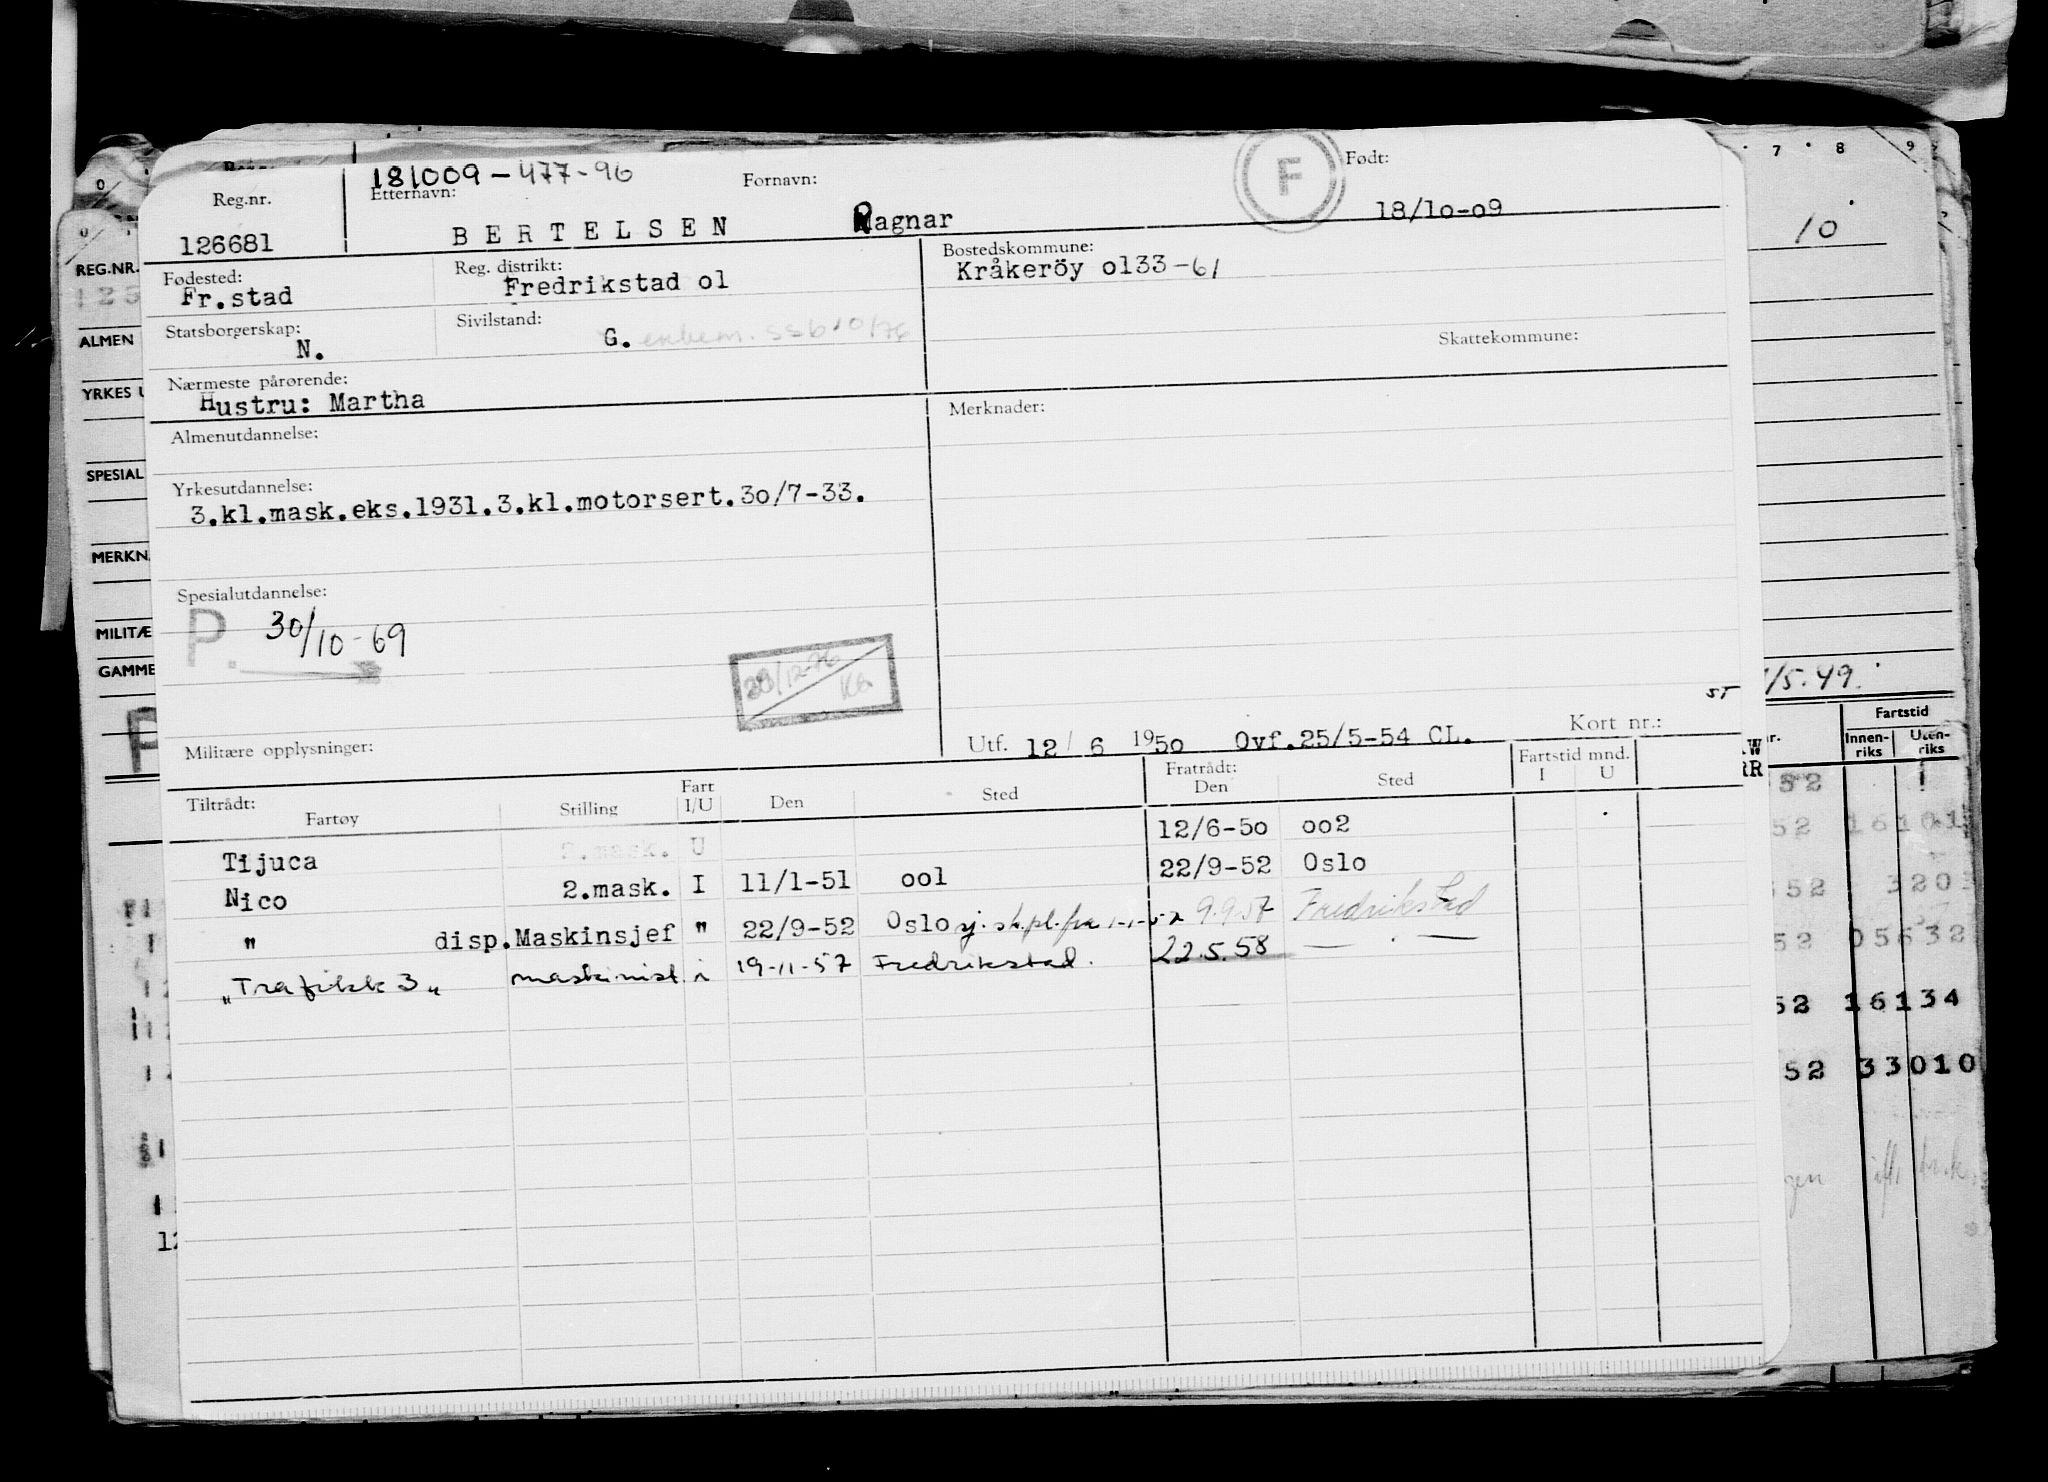 181009-477-96
Reg.nr. Etternavn: Fornavn: F Født:
126681 BERTELSEN Ragnar 18/10-09
Fødested: Reg. distrikt: Bostedskommune:
Fr.stad Fredrikstad o1 Kråkeröy o133-61
Statsborgerskap: Sivilstand: Skattekommune:
N. G.
Nærmeste pårørende:
Hustru: Martha
Almenutdannelse: Merknader:
Yrkesutdannelse:
3.kl.mask.eks.1931.3.kl.motorsert.30/7-33.
Spesialutdannelse:
P. 30/10-69
28/12-76
KB
ST
Militære opplysninger: Utf. 12/6 1950 Ovf.25/5-54 CL. Kort nr.:
Tiltrådt: Fratrådt: Fartstid mnd.
Fartøy Stilling Fart I/U Den Sted Den Sted I U
Tijuca 2.mask. U 12/6-50 oo2
Nico 2.mask. I 11/1-51 oo1 22/9-52 Oslo
" disp.Maskinsjef " 22/9-52 Oslo sj. sk.pl. fra 1-1-52 9.9.57 Fredrikstad
"Trafikk 3" maskinist. i 19-11-57 Fredrikstad. 22.5.58 — . —
REG.NR.
ALMEN
YRKES U
SPESIAL
MERKN
MILITÆ
GAMME
P
7 8 9
10
/5.49.
Fartstid
nr. Innen-riks Uten-riks
52 16134
52 33010